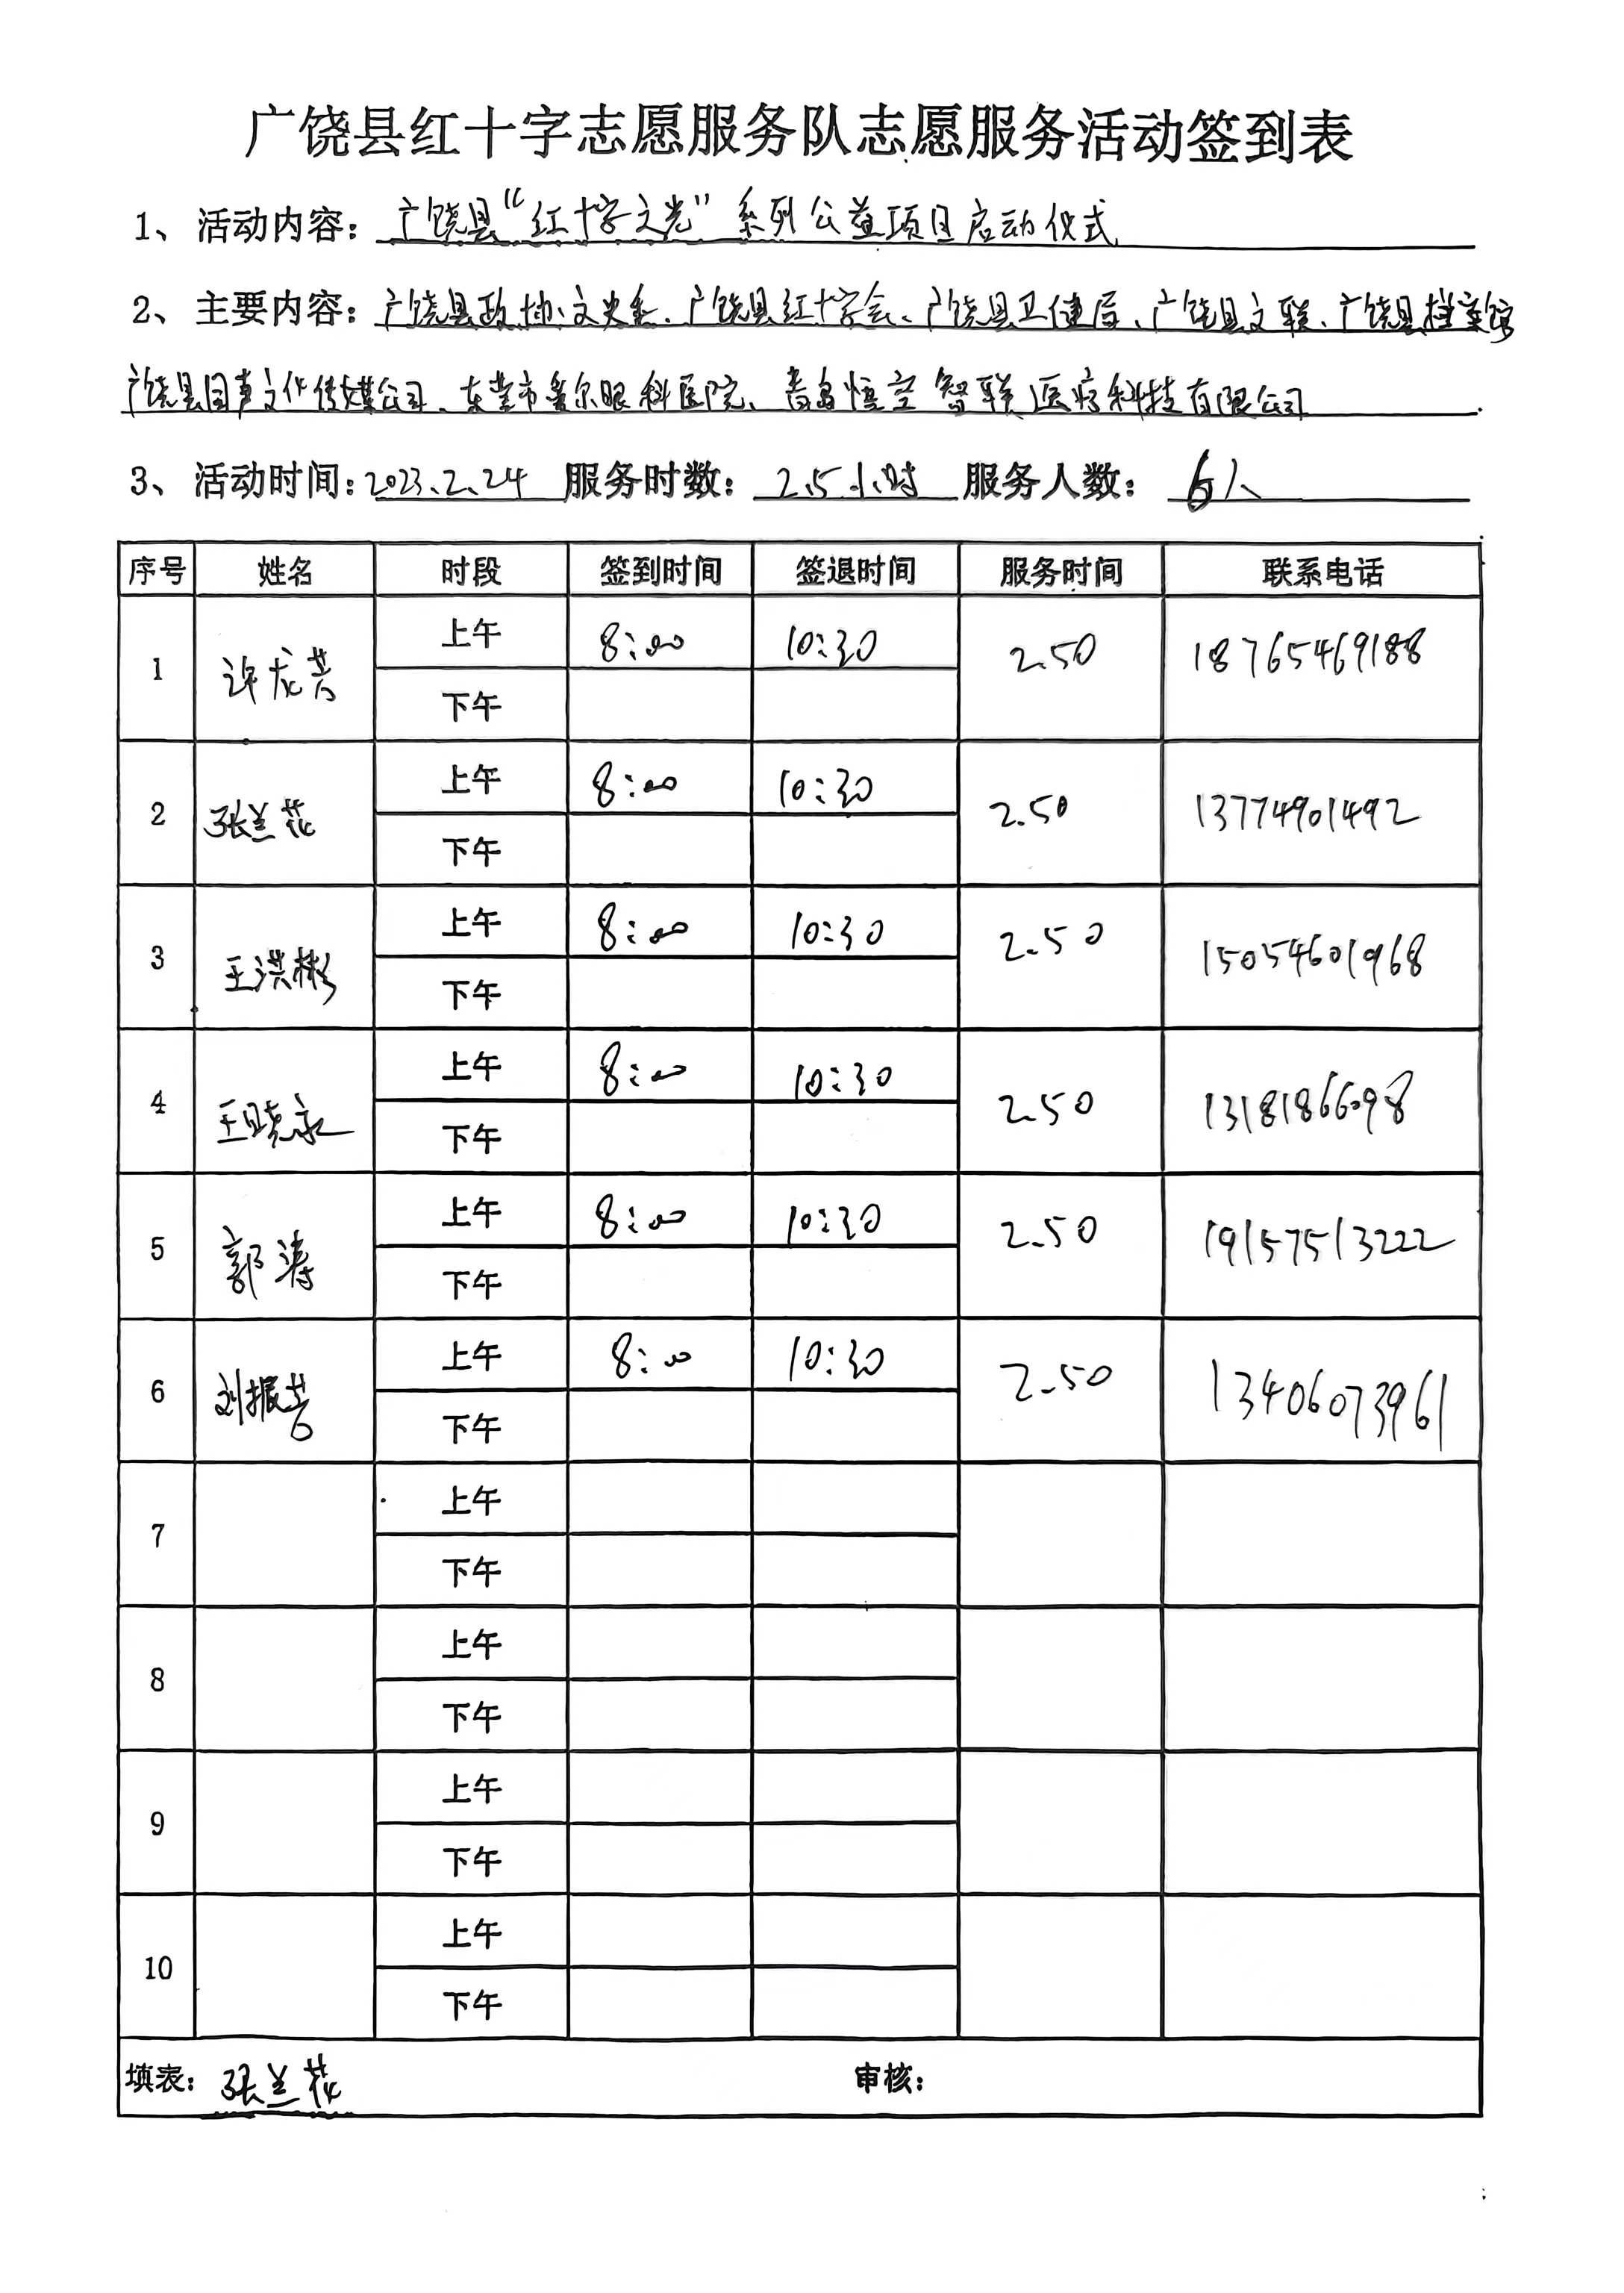 广饶县红十字志愿服务队志愿服务活动签到表
1、活动内容：广饶县“红十字文光”系列公益项目启动仪式
2、主要内容：广饶县政协文史委、广饶县红十字会、广饶县卫健局、广饶县文联、广饶县档案馆
广饶县同声文化传媒公司、东营市爱尔眼科医院、青岛悟空智联医疗科技有限公司
3、活动时间：2023.2.24 服务时数：2.5小时 服务人数：6人
序号 姓名 时段 签到时间 签退时间 服务时间 联系电话
1 许龙芸 上午 8:00 10:30 2.50 18765469188
下午
2 张兰花 上午 8:00 10:30 2.50 13774901492
下午
3 王洪彬 上午 8:00 10:30 2.50 15054601968
下午
4 王晓永 上午 8:00 10:30 2.50 13181866098
下午
5 郭涛 上午 8:00 10:30 2.50 19157513222
下午
6 刘振 上午 8:00 10:30 2.50 13406073961
下午
7 上午
下午
8 上午
下午
9 上午
下午
10 上午
下午
填表：张兰花 审核：